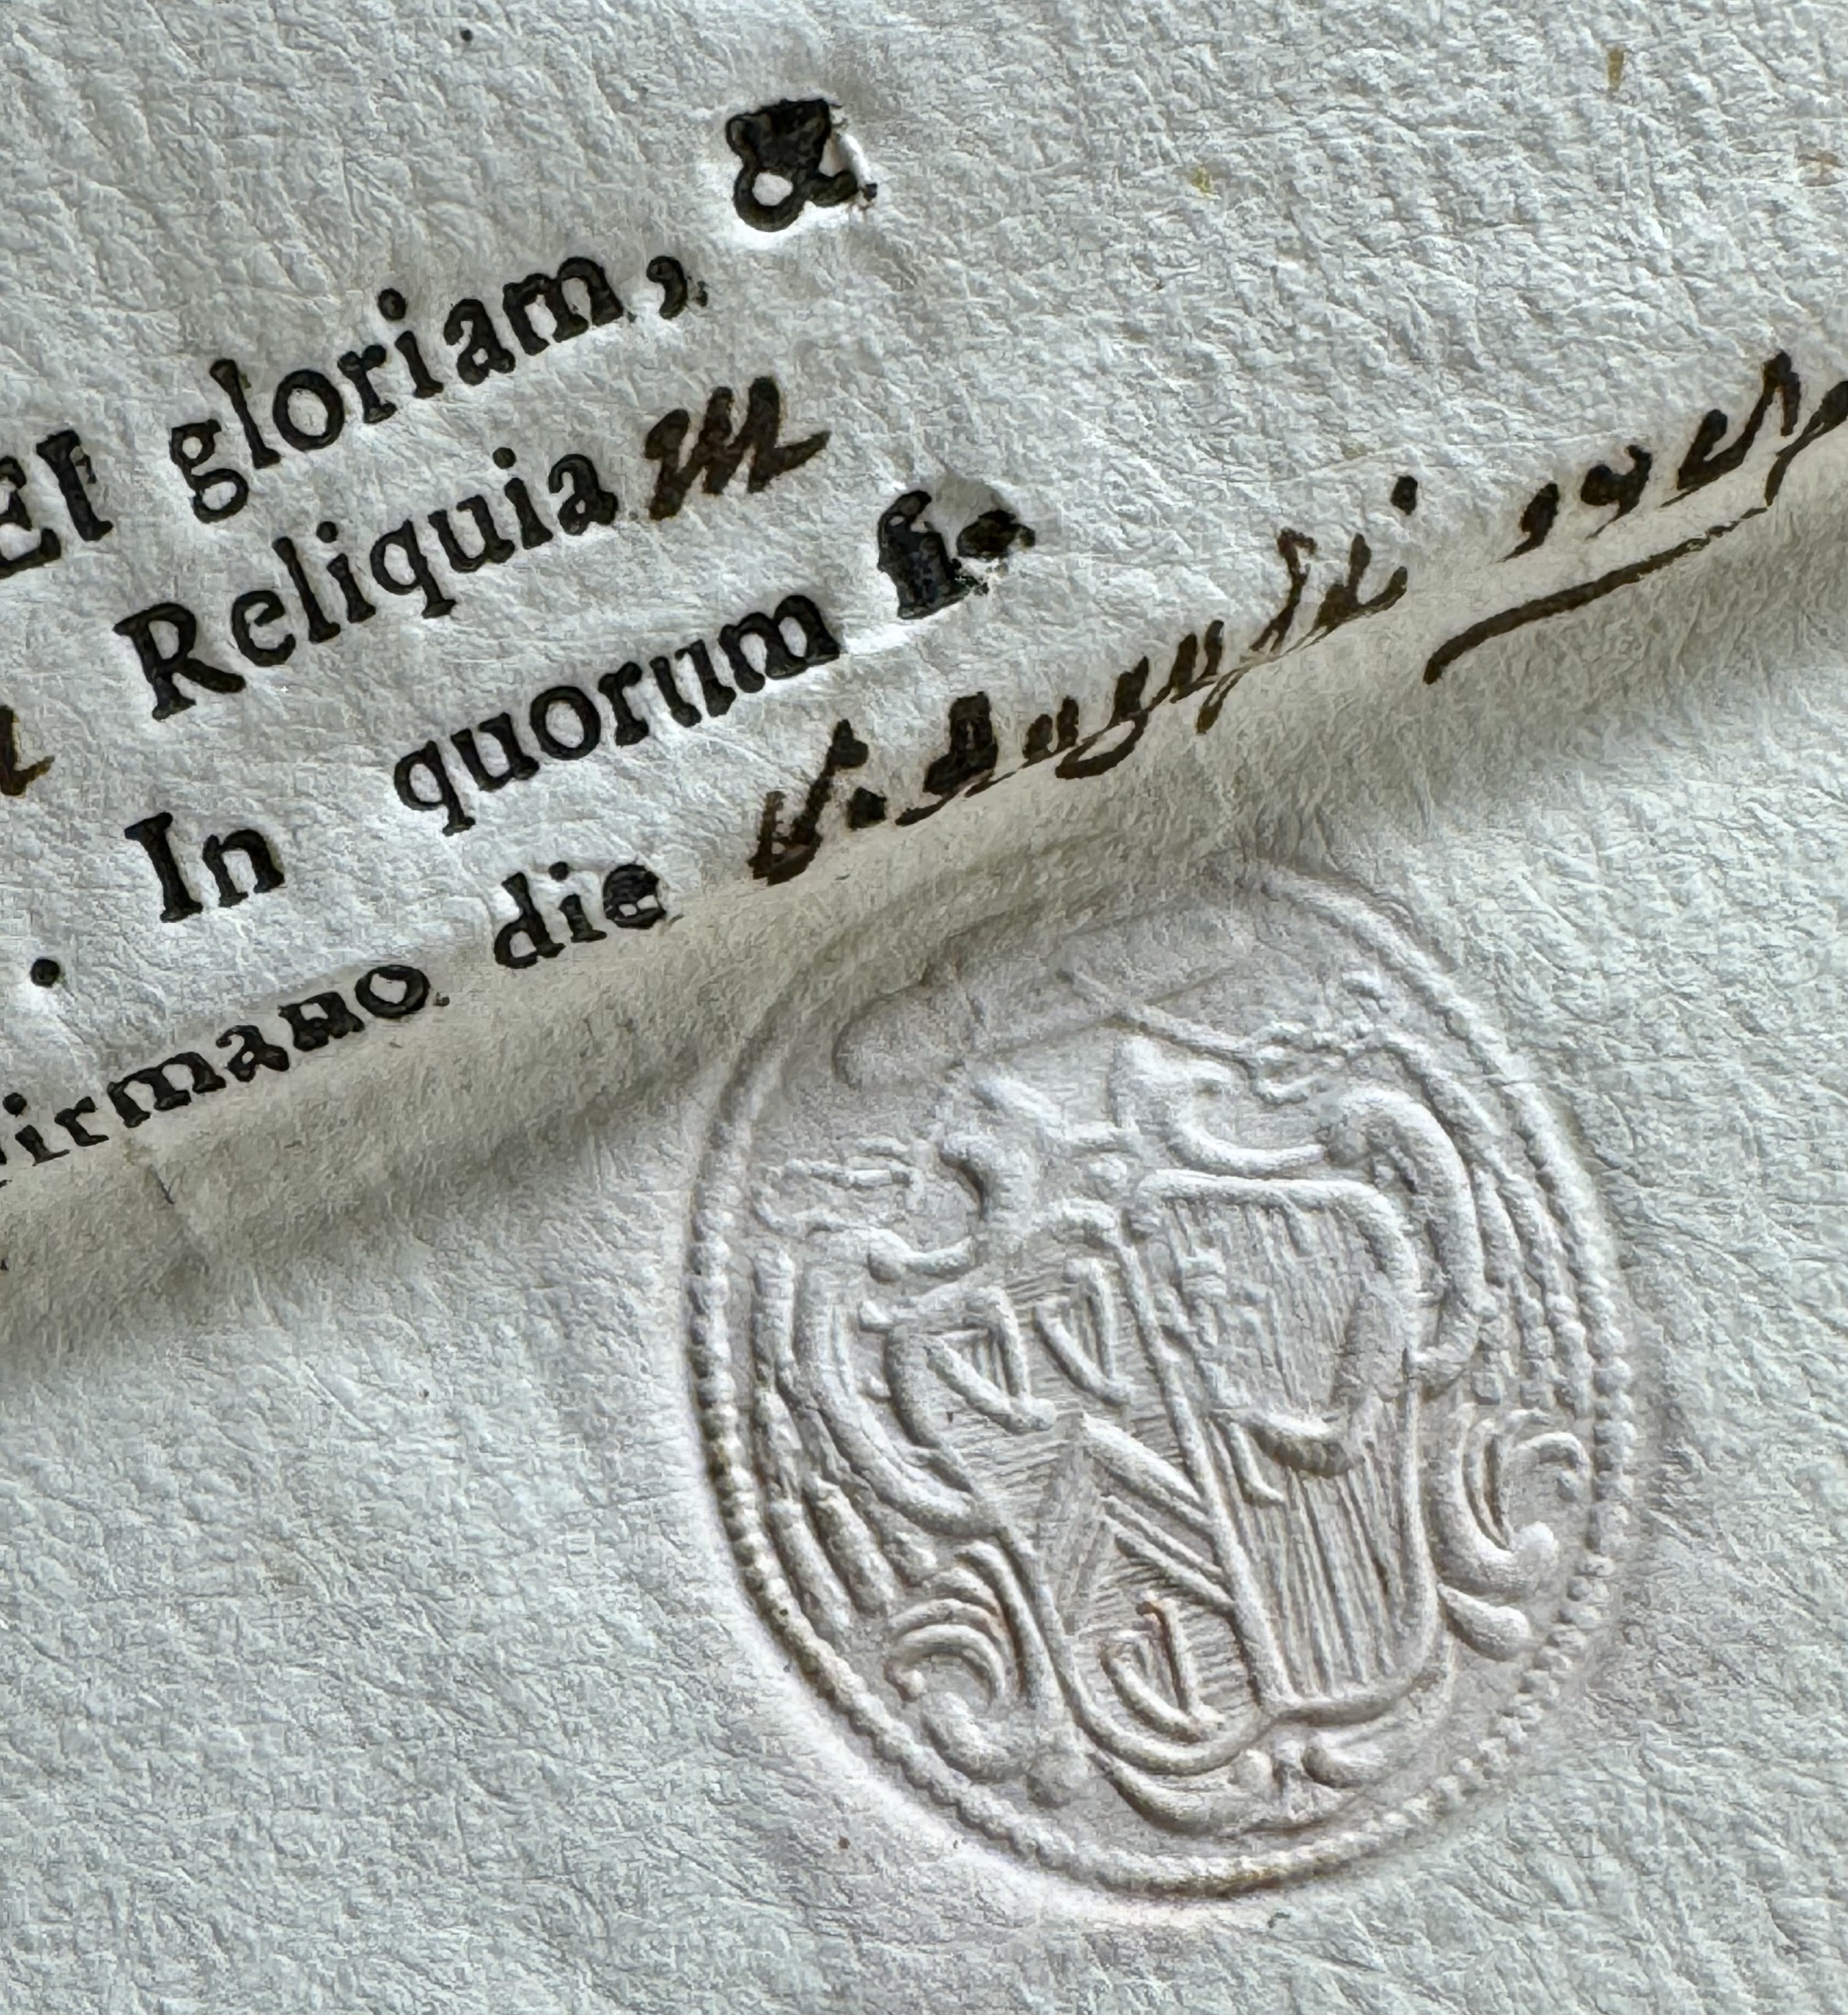 EI gloriam, &
Reliquiam
In quorum
irmano die Augusti